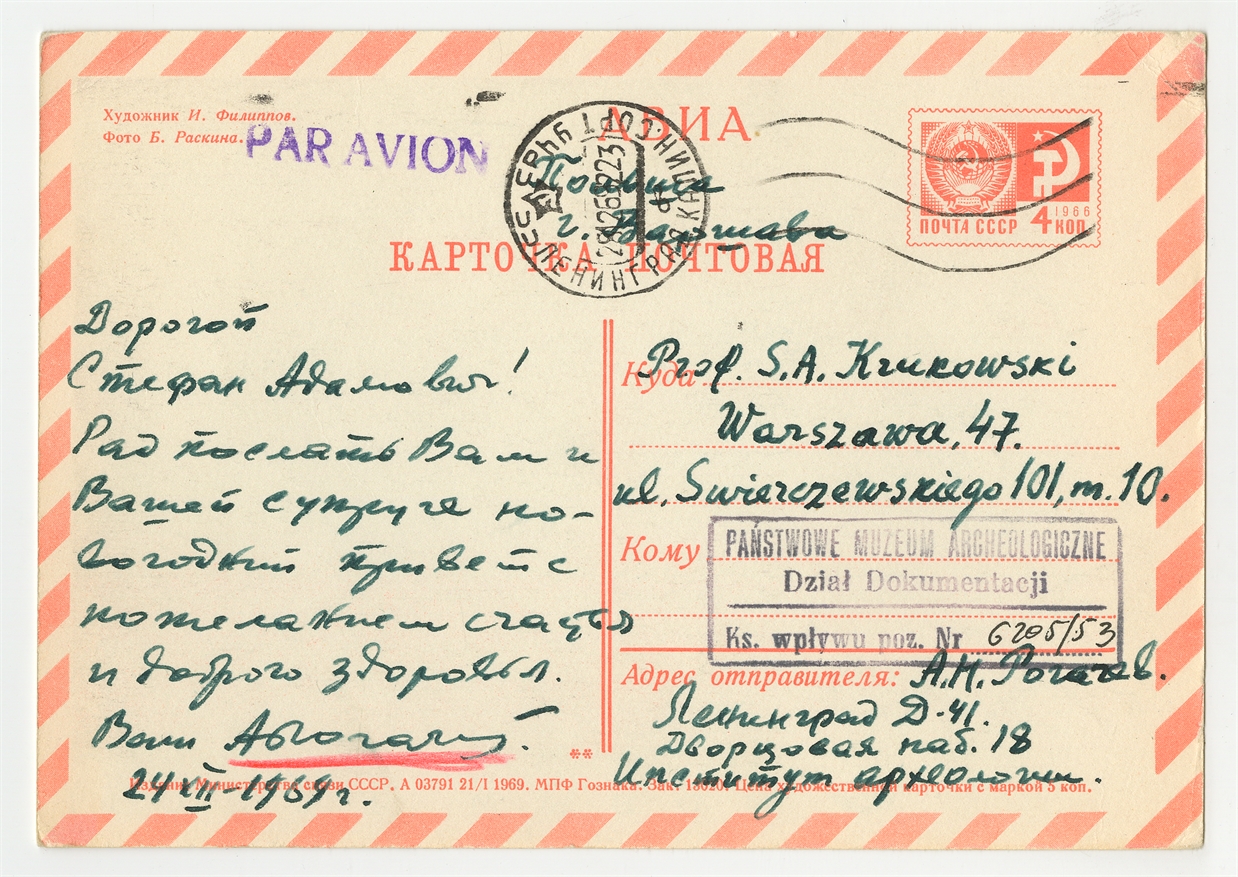 Художник И. Филиппов.
Фото Б. Раскина.
PAR AVION
АВИА
Польша
г. Варшава
КАРТОЧКА ПОЧТОВАЯ
ЛЕНИНГРАД
ПОЧТА СССР
4 КОП
1966
Дорогой
Стефан Адамович!
Рад послать Вам и
Вашей супруге но-
вогодний привет с
пожеланием счастья
и доброго здоровья.
Ваш АРогачев.
24 XII-1969 г.
Куда Prof. S.A. Krukowski
Warszawa, 47.
ul. Swierczewskiego 101, m. 10.
Кому
PAŃSTWOWE MUZEUM ARCHEOLOGICZNE
Dział Dokumentacji
Ks. wpływu poz. Nr 6205/53
Адрес отправителя: А.Н. Рогачев.
Ленинград Д-41.
Дворцовая наб. 18
Институт археологии.
**
Издание Министерства связи СССР. А 03791 21/I 1969. МПФ Гознака. Зак. 13020. Цена художественной карточки с маркой 5 коп.